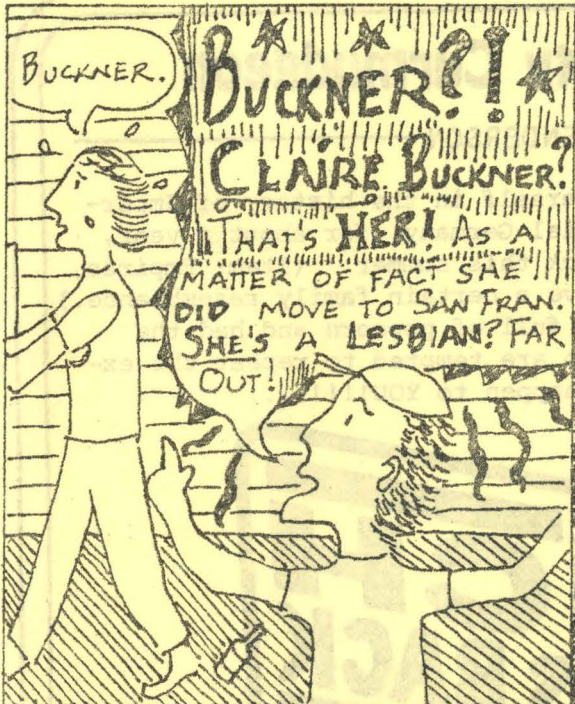 BUCKNER.
BUCKNER?!
CLAIRE BUCKNER?
THAT'S HER! AS A
MATTER OF FACT SHE
DID MOVE TO SAN FRAN.
SHE'S A LESBIAN? FAR
OUT!